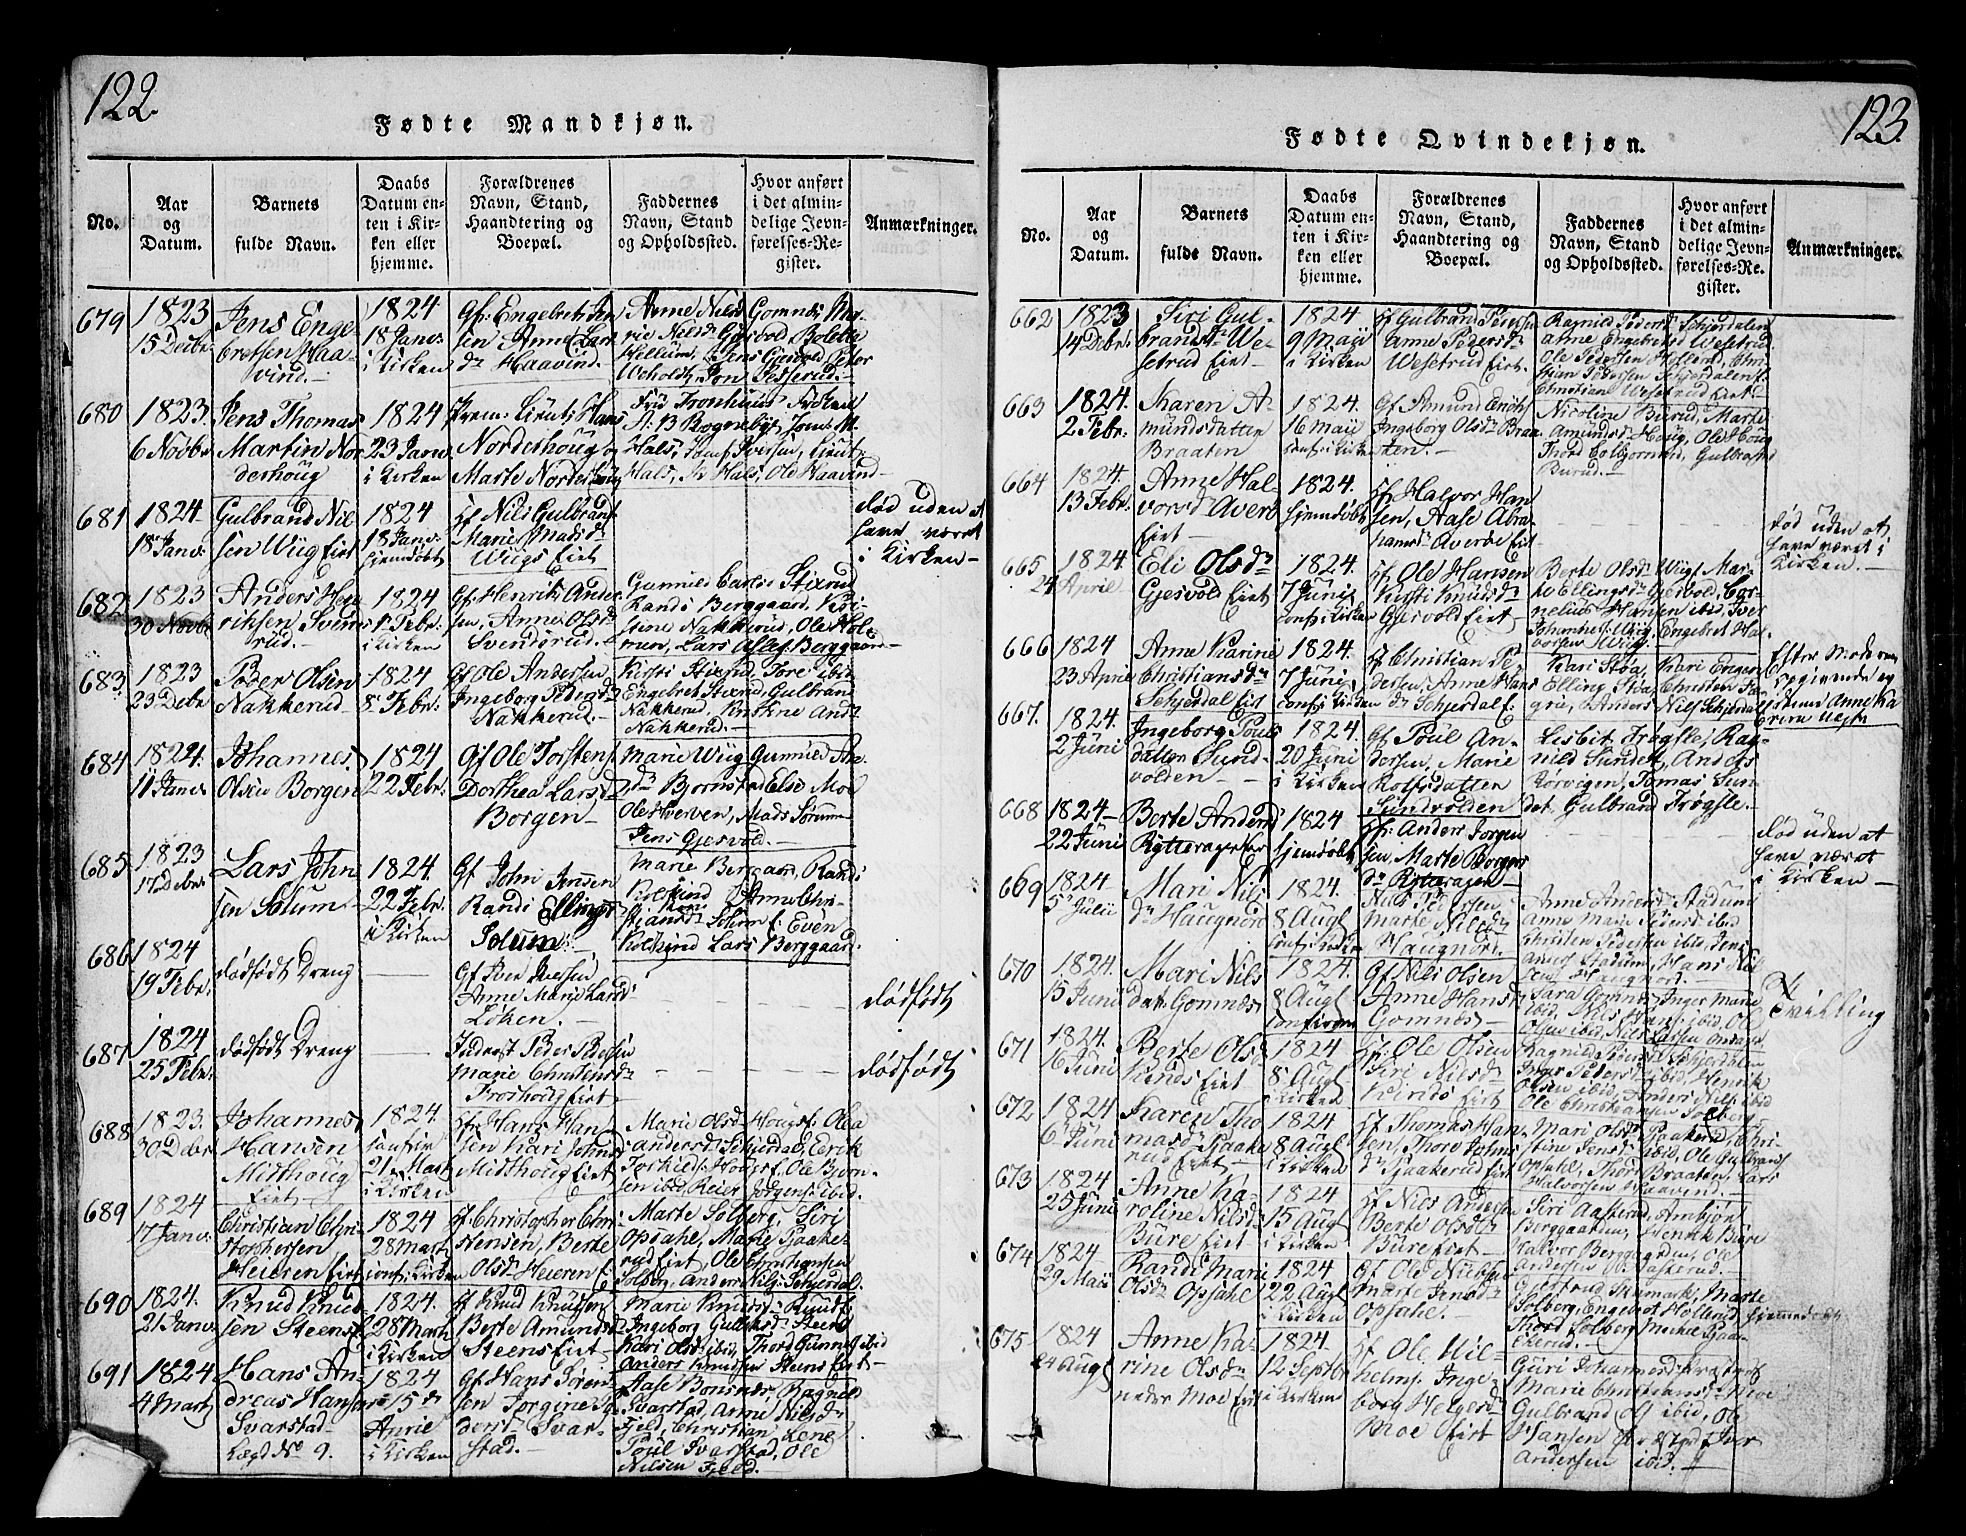 122.
Fødte Mandkjøn.
No.
Aar
og
Datum.
Barnets
fulde Navn.
Daabs
Datum en-
ten i Kir-
ken eller
hjemme.
Forældrenes
Navn, Stand,
Haandtering og
Boepæl.
Faddernes
Navn, Stand
og Opholdssted.
Hvor anført
i det almin-
delige Jevn-
førelses-Re-
gister.
Anmærkninger.
679
1823
15 Decbr
Jens Enge-
bretsen Haa-
vind.
1824
18 Janv:
i Kirken
Gf: Engebret Jen
sen Anne Lars
dr Haavind.
Anne Nilsd Gomnæs Ma-
rie Nilsdr Gjesvold, Bolette
Willum, Jens Gjesvold, Peter
680
1823.
6 Novbr
Jens Thomas
Martin Nor
derhoug
1824
23 Janv
i Kirken
Prem: Lieut: Hans
Norderhoug
Marte Norderhoug
Hals, Ole Haavind
681
1824
18 Janv:
Gulbrand Nil
sen Wiig Eiet
1824
18 Janv:
hjemdøbt
Gf Nils Gulbrand
Marie Madsdr
Wiigs Eiet
død uden at
have været
i Kirken
682
1823
30 Novbr
Anders Hen
riksen Svens
rud.
1824
1 Febr:
i Kirken
Gf: Henrik Ander
sen, Anne Olsd
Svendsrud.
Gunnild Carlsd Stixrud
Randi Berggaard, Kir-
stine Nakkerud, Ole Hol-
Lars Berggaard
683.
1823
23 Decbr
Peder Olsen
Nakkerud
1824
8 Febr:
Gf Ole Andersen
Ingeborg Pedersd
Nakkerud.
Kirsti Stixrud, Tore ibid
Engebret Stixrud, Gulbrand
Nakkerud, Kirstine And:
Nakkerud.
684
1824.
11 Janv
Johannes
Olsen Borgen
1824
22 Febr:
Gf Ole Torstens
Dorthea Larsd
Borgen
Marie Wiig Gunnild An-
dr Bjørnstad Else Moe
Mads Sørum
Jens Gjesvold.
685
1823
17 Debr
Lars John
sen Solum
1824.
22 Febr.
i Kirken
Gf John Jensen
Randi Ellingsd
Solum:
Marie Bergaard, Randi
Kolkind Anne Chri-
stiansd Solum f. Even
Kolkind Lars Berggaard.
686
1824
19 Febr:
dødfødt Dreng
Gf Iver Iversen
Anne Marie Larsd:
Løken.
dødfødt
687
1824
25 Febr:
dødfødt Dreng
Inderst Peder Pedersen
Marie Christensdr
Froshoug Eiet
dødfødt
688
1823.
30 Debr
Johannes
Hansen
Midthoug
Eiet
1824.
confirm
21 Mart
i Kirken
Gf: Hans Han
sen Kari Johns
Midthoug Eiet
Marie Olsd Hougsf. Olea
Andersd Schjerdal, Erik
Torkilds: Hougsf. Ole Bjørn-
sen ibid Reier Jørgens: ibid.
689
1824
17 Janv:
Christian Chri-
stophersen
Heieren Eiet
1824
28 Mart
conf i Kirken
Gf: Christopher Chri-
stensen, Berte
Olsd Heieren E
Marte Solberg, Siri
Opsahl, Marie Gaake-
rud Eiet, Ole Christiansen
Solberg, Anders Nils: Schjerdal.
690
1824.
21 Janv
Knud Knud-
sen Steensf
1824.
28 Marti
i Kirken
Gf Knud Knudsen
Berte Amundsd
Steens Eiet
Marie Knudsd: Rund f.
Ingeborg Gulbrdsd: Steens
Kari Olsd ibid Thord Gunns ibid
Anders Knudsen Steens Eiet
691
1824
4 Marti
Hans An-
dreas Hansen
Svarstad
Lægd No 9.
1824
15 de
Aprie
i Kirken
Gf Hans Søren-
sen Jorgine Pe
dersd Svar-
stad.
Aase Bonsnæs, Ragnild
Svarstad, Anne Nilsd
Fjeld, Christian Lene
Poul Svarstad, Ole
Nilsen Fjeld.
123
Fødte Qvindekjøn.
No.
Aar
og
Datum.
Barnets
fulde Navn.
Daabs
Datum en-
ten i Kir-
ken eller
hjemme.
Forældrenes
Navn, Stand,
Haandtering og
Boepæl.
Faddernes
Navn, Stand
og Opholdssted.
Hvor anført
i det almin-
delige Jevn-
førelses-Re-
gister.
Anmærkninger.
662
1823
14 Debr:
Siri Gul-
brandsdr We-
setrud Eiet
1824
9 Maii
i Kirken
Gf Gulbrand Peders
Anne Pedersdr
Wesetrud Eiet.
Ragnild Pedersd Schjerdalen
Anne Engebretsd Wesetrud
Ole Pedersen Hollerud, Chri-
stian Pedersen Schjerdalen f.
Christiane Wesetrud Eiet
663
1824.
2 Febr:
Karen A-
mundsdatter
Braaten
1824.
16 Maii
conf: i Kirken
Gf Amund Erich
Ingeborg Olsdr Braa
ten.
Nicoline Burud, Marte
Amundsd Houg, Ole Houg
Thord Colbjørnrud, Gulbrand
Burud.
664
1824.
13 Febr:
Anne Hal-
vorsd Averø
Eiet
1824.
hjemdøbt
Gf Halvor Han
sen, Aase Abra-
hamsdr Averøe Eiet
død uden at
have været i
Kirken.
665
1824.
24 April
Eli Olsdr
Gjesvold Eiet
1824.
7 Juni
conf i Kirken
Gf Ole Hansen
Kirsti Knudsdr
Gjesvold Eiet
Berte Olsdr Wiig f Mar-
the Ellingsdr Gjesvold, Cor-
nelius Hansen ibid, Iver
Johannes: Wiig, Engebret Hal-
vorsen Wiig.
666
1824
23 April
Anne Karine
Christiansdr
Schjerdal Eiet
1824.
7 Juni
conf i Kirken
Gf Christian Pe
dersen, Anne Hans
dr Schjerdal f.
Kari Støa, Kari Engen
Elling Støa, Christen Fa-
grie, Anders Nils Schjerdal
Efter Moderens
opgivende og
Anne Ka
667.
1824.
2 Juni
Ingeborg Pouls
datter Sund-
volden
1824.
20 Juni
i Kirken
Gf Poul An-
dersen, Marie
Rolfsdatter
Sundvolden
Lisbet Frøgsle, Rag-
nild Sundet, Anders
Rørvigen, Tomas Sun-
det. Gulbrand Frøgsle.
668
1824
22 Juni
Berte Andersd
Rytteragerene
1824
hjemdøbt
Gf: Anders Jorgen
sen, Marte Borgers
dr Rytterager
død uden at
have været
i Kirken
669
1824
5 Julii
Mari Nils
dr Haugnord
1824.
8 Augt
conf i Kirken
Nils Pedersen
Marte Nilsdr
Haugnord.
Anne Andersd Stadum
Anne Marie Pedersd: ibid
Christen Pedersen ibid, Jens
Stadum, Hans Nil
sen Haugnord.
670
1824.
15 Juni
Mari Nils
datr Gomnæs
1824.
8 Augt
confirm
Gf Nils Olsen
Anne Hansd
Gomnæs
Sara Gomnæs Inger Marie
ibid, Nils Hans: ibid, Ole
Olsen ibid, Nils Larsen
Tvilling
671
1824.
16 Juni
Berte Olsd
Kinds Eiet
1824
8 Augt
i Kirken
Gf: Ole Olsen
Siri Nilsdr
Kinds Eiet
Ragnild Pedersd Schjerdalen
Inger Pedersd: ibid, Henrik
Olsen ibid, Anders Nils: ibid
Ole Christiansen Solberg
672
1824
6 Juni
Karen Tho
masdr Gaake
rud Eiet
1824
8 Augt
i Kirken
Gf Thomas Han-
sen, Thore Johns
dr Gaakerud Eiet
Mari Olsdr Gaakerud, Chri-
stine Jensdr ibid, Ole Gulbrands
Opsahl, Thord Braaten, Lars
Halvorsen Haavend.
673
1824
25 Juni
Anne Ka-
roline Nilsd
Bure Eiet
1824
15 Augt
i Kirken
Gf Niels Andersen
Berte Olsdr
Bure Eiet
Siri Aasterud, Ambjør
Berggaarden, Henrik Bure
Halvor Berggaarden, Ole
Andersen Aasterud.
674
1824
29 Maii
Randi Marie
Olsdr Opsahl
1824
22 Augt
i Kirken
Gf Ole Nielsen
Marte Jensdr
Opsahl.
Gjertrud Skjømark, Marte
Solberg, Engebret Hollerud
Thord Solberg Michel Gaa-
kerud.
675
1824
24 Augt
Anne Ka-
rine Olsdr
nedre Moe Eiet
1824
12 Septbr
i Kirken
Gf Ole Wil-
helms: Inge-
borg Helgesdr
Moe Eiet
Guri Johannesd:
Marie Christiansd: Moe
Gulbrand Ols ibid, Ole
Hansen Iver
Andersen ibid.